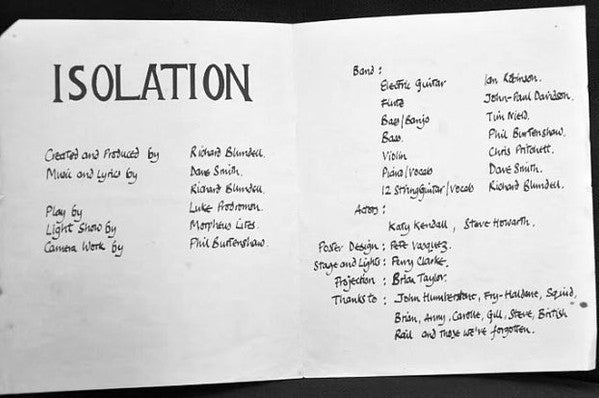 ISOLATION
Created and Produced by Richard Blundell.
Music and Lyrics by Dave Smith.
Richard Blundell.
Play by Luke Prodromou.
Light Show by Morpheus Lites.
Camera Work by Phil Burtenshaw.
Band :
Electric Guitar Ian Robinson.
Flute John-Paul Davidson.
Bass/Banjo Tim Nield.
Bass. Phil Burtenshaw.
Violin Chris Pritchett.
Piano/Vocals Dave Smith.
12 String Guitar/Vocals Richard Blundell.
Actors :
Katy Kendall, Steve Howarth.
Poster Design : Pete Vasquez.
Stage and Lights : Perry Clarke.
Projection : Brian Taylor.
Thanks to : John Humberstone, Fry-Haldane, Squid,
Brian, Anny, Carolle, Gill, Steve, British
Rail and those we've forgotten.